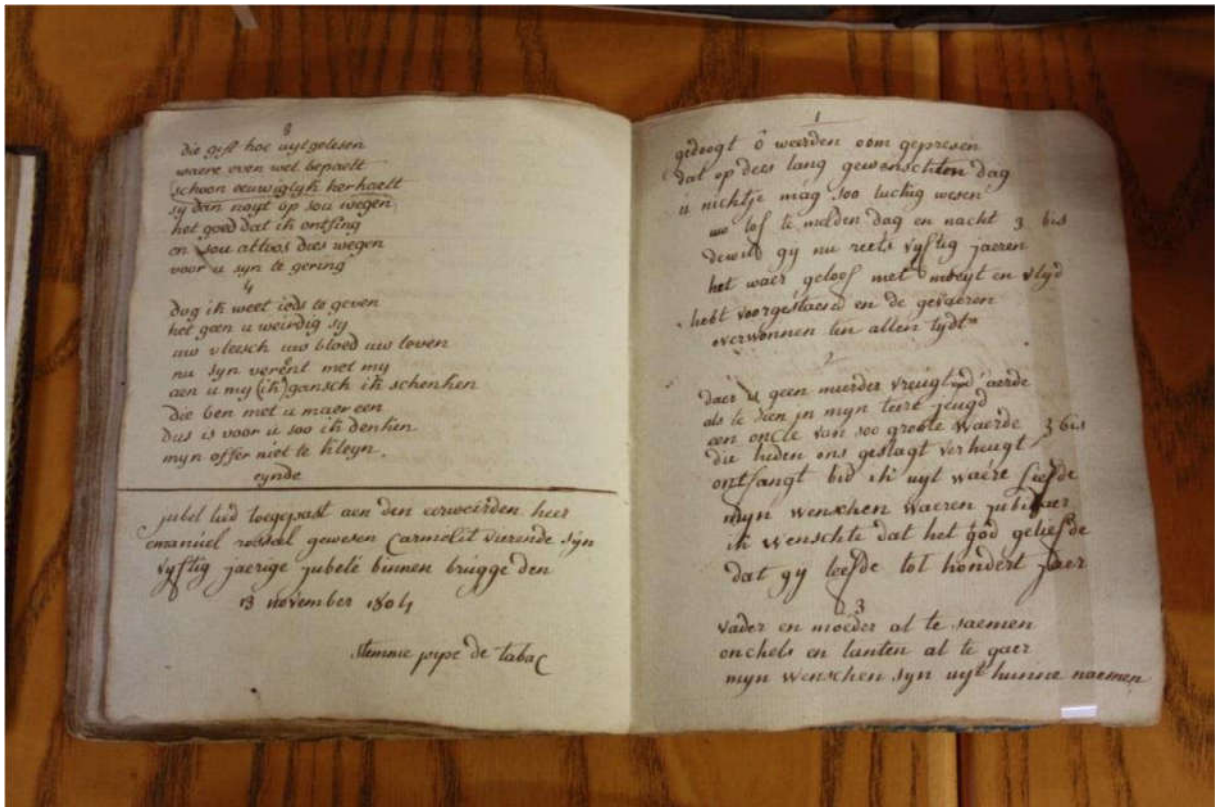 3
die gift hoe uytgelesen
waere even wel bepaelt
schoon eeuwiglyk herhaelt
sy dan noyt op sou wegen
het goed dat ik ontfing
en sou altoos dees wegen
voor u syn te gering
4
dog ik weet iets te geven
het geen u weirdig sy
uw vleesch uw bloed uw leven
nu syn verent met my
aen u my (ik) gansch ik schenken
die ben met u maer een
dus is voor u soo ik denken
myn offer niet te kleyn.
eynde
jubel lied toegepast aen den eerweirden heer
emanuel rossael gewesen Carmelit vierende syn
vyftig jaerige jubelé binnen brugge den
13 november 1804
stemme pipe de tabac
1
gedoogt ô weerden oom gepresen
dat op dees lang gewenschten dag
u nichtje mag soo luchtig wesen
uw lof te melden dag en nacht 3 bis
dewyl gy nu reets vyftig jaeren
het waer geloof met moeyt en vlyd
hebt voorgestaend en de gevaeren
overwonnen ten allen tydt
2
daer is geen meerder vreugt op d'aerde
als te sien in myn teire jeugd
een oncle van soo groote waerde 3 bis
die heden ons geslagt verheugt
ontfangt bid ik uyt waere liefde
myn wenschen waeren jubilaer
ik wenschte dat het god geliefde
dat gy leefde tot hondert jaer
3
vader en moeder al te saemen
onchels en tanten al te gaer
myn wenschen syn uyt hunne naemen